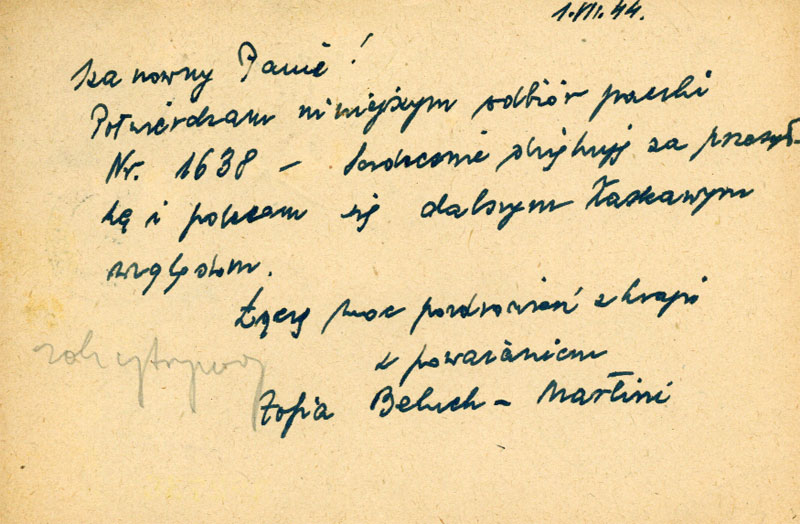 1.VII.44.
Szanowny Panie!
Potwierdzam niniejszym odbiór paczki
Nr. 1638 – Serdecznie dziękuję za przesył-
kę i polecam się dalszym łaskawym
względom.
Łączę moc pozdrowień z kraju
z poważaniem
Zofia Beluch-Martini